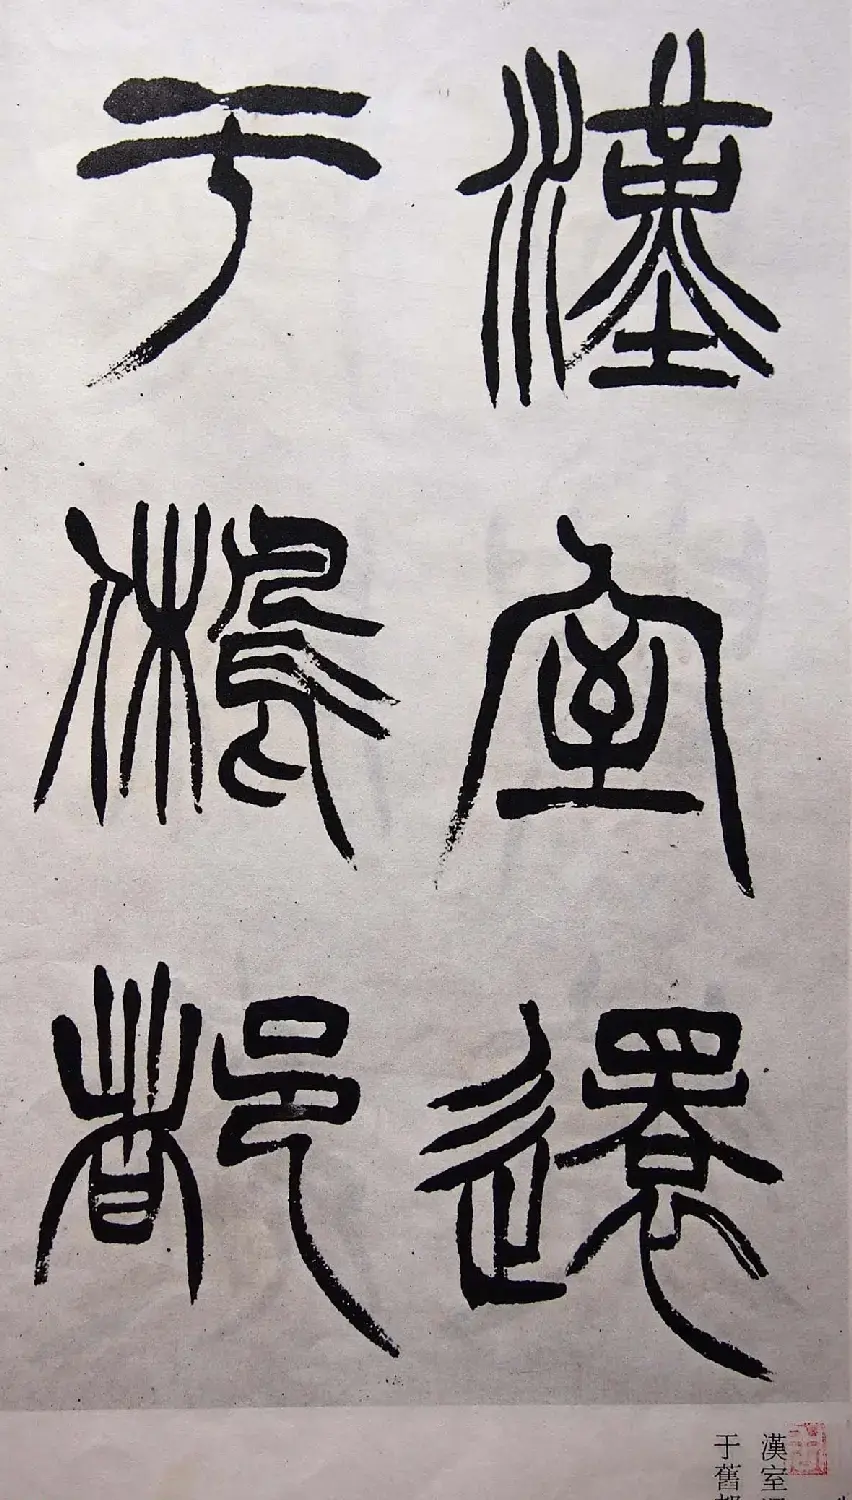 漢室還
于舊都
漢室
于舊